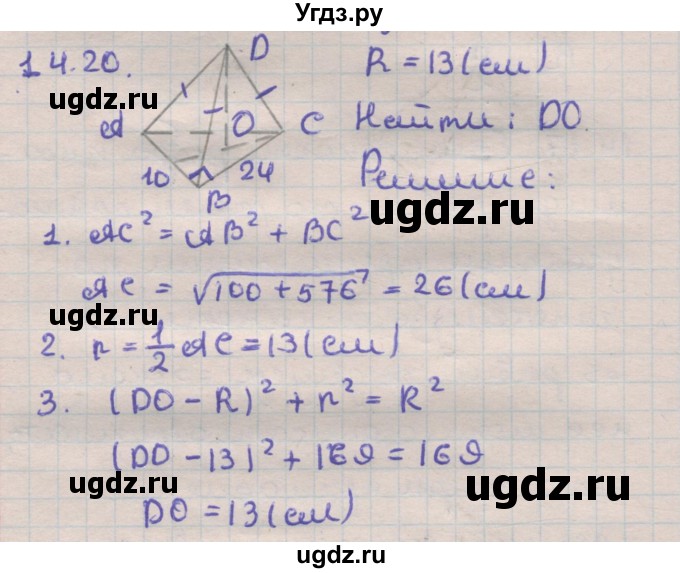 Угдз.ру
14.20.
D
R = 13 (см)
A
O
C
Найти: DO.
10
24
B
Решение:
1. AC² = AB² + BC²
AC = √100 + 576 = 26 (см)
2. r = 1/2 AC = 13 (см)
3. (DO - R)² + r² = R²
(DO - 13)² + 169 = 169
DO = 13 (см)
ugdz.ru
ugdz.ru
ugdz.ru
ugdz.ru
ugdz.ru
ugdz.ru
ugdz.ru